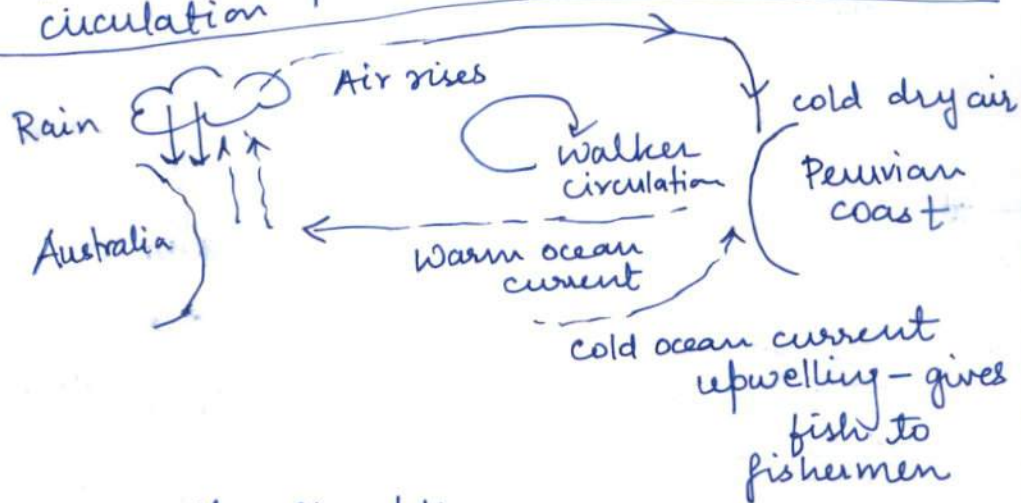 circulation
Air rises
Rain
cold dry air
Walker
circulation
Peruvian
coast
Australia
Warm ocean
current
cold ocean current
upwelling – gives
fish to
fishermen